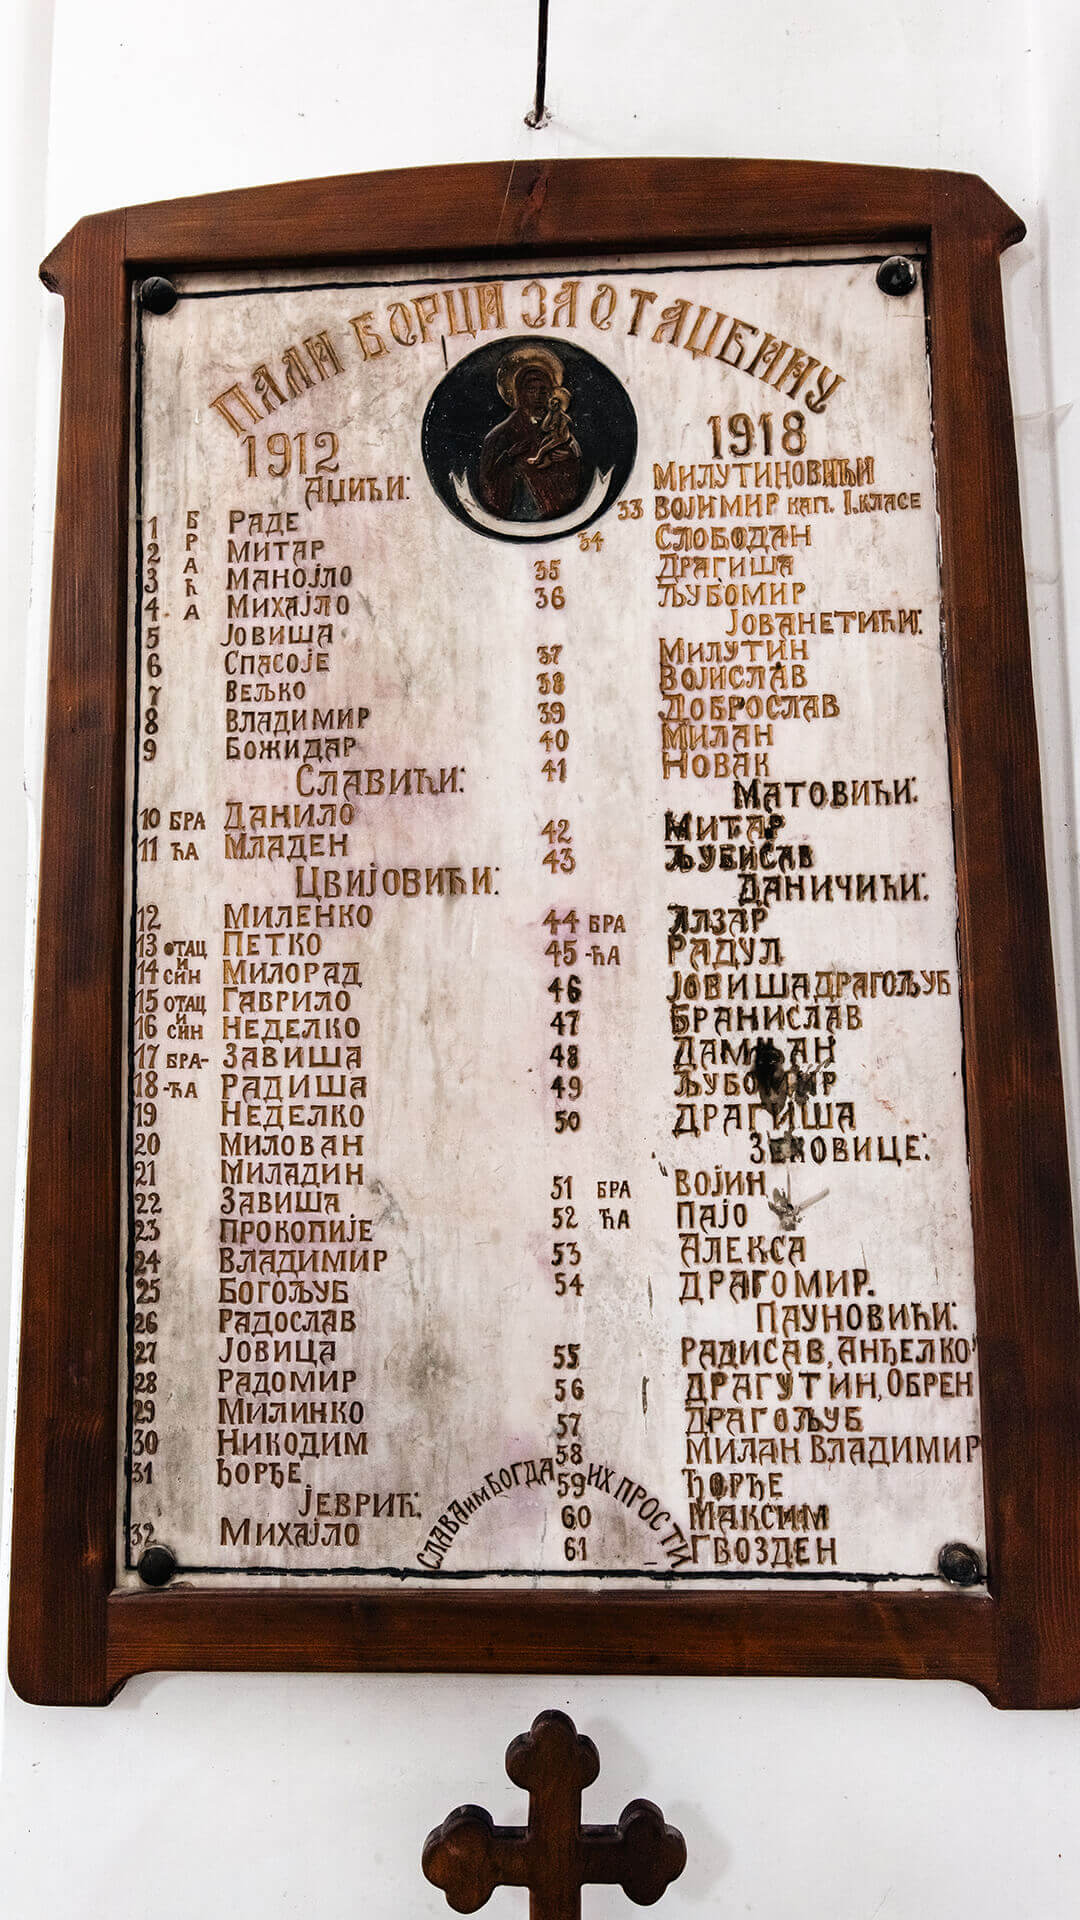 ПАЛИ БОРЦИ ЗА ОТАЏБИНУ
1912
АЏИЋИ:
1 БРАЋА РАДЕ
2 МИТАР
3 МАНОЈЛО
4 МИХАЈЛО
5 ЈОВИША
6 СПАСОЈЕ
7 ВЕЉКО
8 ВЛАДИМИР
9 БОЖИДАР
СЛАВИЋИ:
10 БРА ДАНИЛО
11 ЋА МЛАДЕН
ЦВИЈОВИЋИ:
12 МИЛЕНКО
13 ОТАЦ ПЕТКО
И
14 СИН МИЛОРАД
15 ОТАЦ ГАВРИЛО
И
16 СИН НЕДЕЛКО
17 БРА- ЗАВИША
18 -ЋА РАДИША
19 НЕДЕЛКО
20 МИЛОВАН
21 МИЛАДИН
22 ЗАВИША
23 ПРОКОПИЈЕ
24 ВЛАДИМИР
25 БОГОЉУБ
26 РАДОСЛАВ
27 ЈОВИЦА
28 РАДОМИР
29 МИЛИНКО
30 НИКОДИМ
31 ЂОРЂЕ
ЈЕВРИЋ:
32 МИХАЈЛО
1918
МИЛУТИНОВИЋИ
33 ВОЈИМИР КАП. I. КЛАСЕ
34 СЛОБОДАН
35 ДРАГИША
36 ЉУБОМИР
ЈОВАНЕТИЋИ:
37 МИЛУТИН
38 ВОЈИСЛАВ
39 ДОБРОСЛАВ
40 МИЛАН
41 НОВАК
МАТОВИЋИ:
42 МИТАР
43 ЉУБИСАВ
ДАНИЧИЋИ:
44 БРА ЛАЗАР
45 -ЋА РАДУЛ
46 ЈОВИША ДРАГОЉУБ
47 БРАНИСЛАВ
48 ДАМЊАН
49 ЉУБОМИР
50 ДРАГИША
ЗЕКОВИЦЕ:
51 БРА ВОЈИН
52 ЋА ПАЈО
53 АЛЕКСА
54 ДРАГОМИР.
ПАУНОВИЋИ:
55 РАДИСАВ, АНЂЕЛКО
56 ДРАГУТИН, ОБРЕН
57 ДРАГОЉУБ
58 МИЛАН ВЛАДИМИР
59 ЂОРЂЕ
60 МАКСИМ
61 ГВОЗДЕН
СЛАВА ИМ БОГ ДА ИХ ПРОСТИ